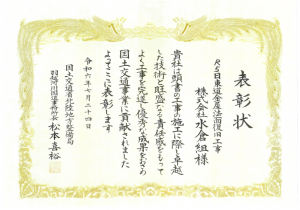 表彰状
R5日東道金屋法面復旧工事
株式会社水倉組様
貴社は頭書の工事の施工に際し卓越
した技術と旺盛なる責任感をもって
よく工事を完遂し優秀な成果をおさめ
国土交通事業に貢献されました
よってここに表彰します
令和六年七月二十四日
国土交通省北陸地方整備局
羽越河川国道事務所長 松本喜裕